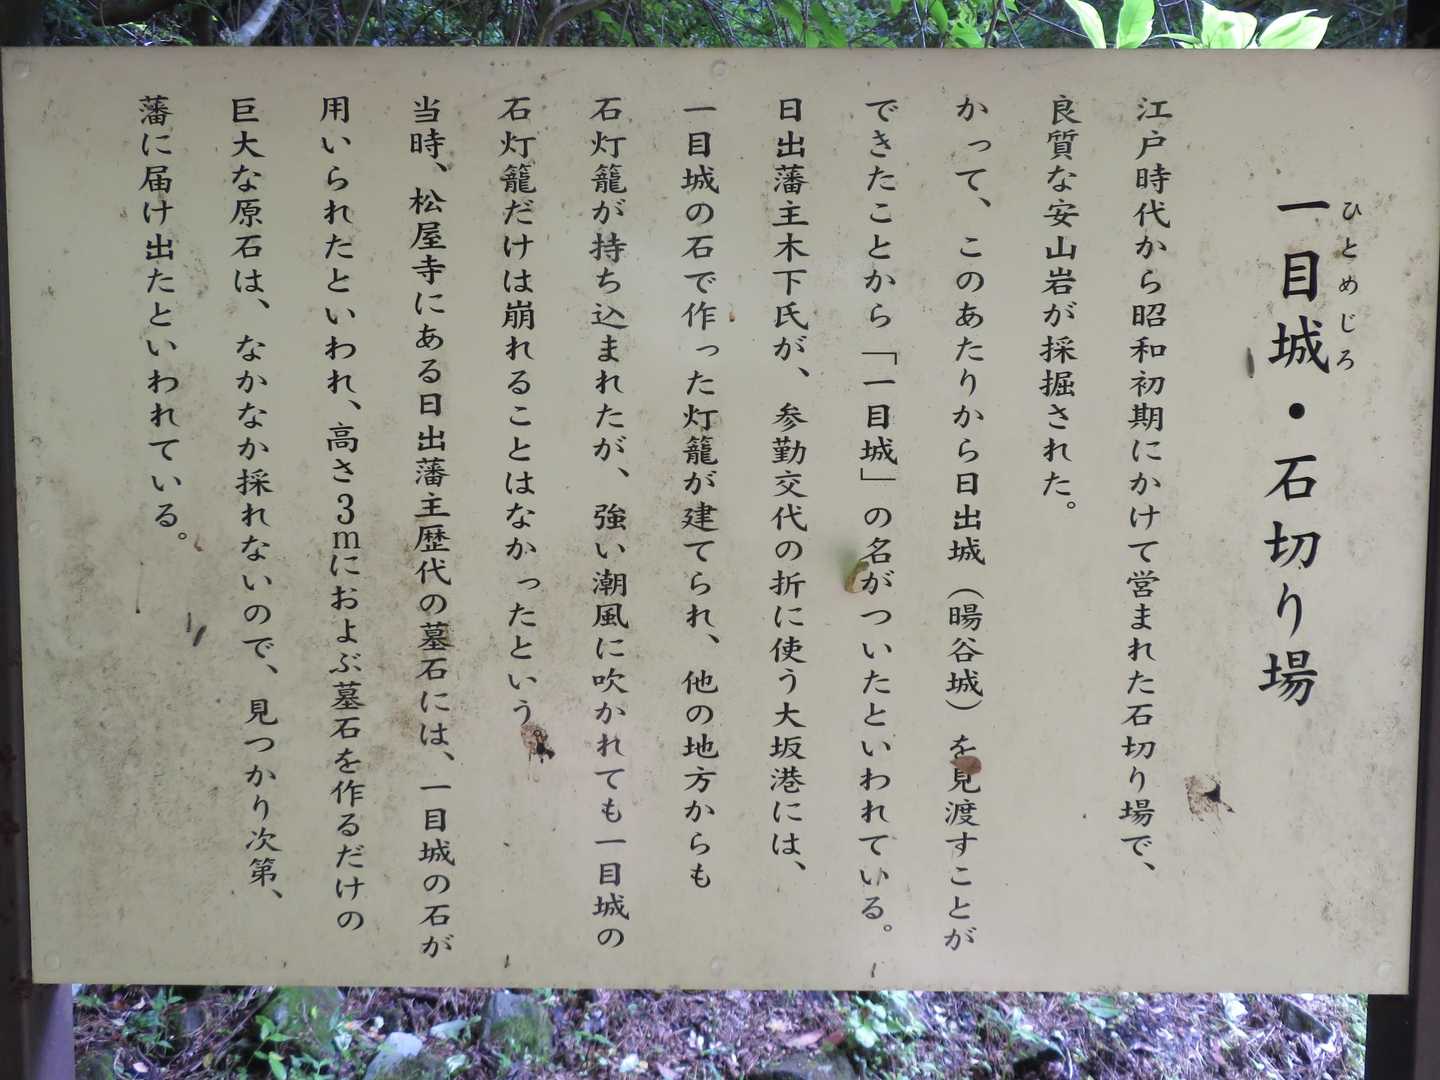 一目城・石切り場
ひとめじろ
江戸時代から昭和初期にかけて営まれた石切り場で、
良質な安山岩が採掘された。
かって、このあたりから日出城（暘谷城）を見渡すことが
できたことから「一目城」の名がついたといわれている。
日出藩主木下氏が、参勤交代の折に使う大坂港には、
一目城の石で作った灯籠が建てられ、他の地方からも
石灯籠が持ち込まれたが、強い潮風に吹かれても一目城の
石灯籠だけは崩れることはなかったという
当時、松屋寺にある日出藩主歴代の墓石には、一目城の石が
用いられたといわれ、高さ3mにおよぶ墓石を作るだけの
巨大な原石は、なかなか採れないので、見つかり次第、
藩に届け出たといわれている。